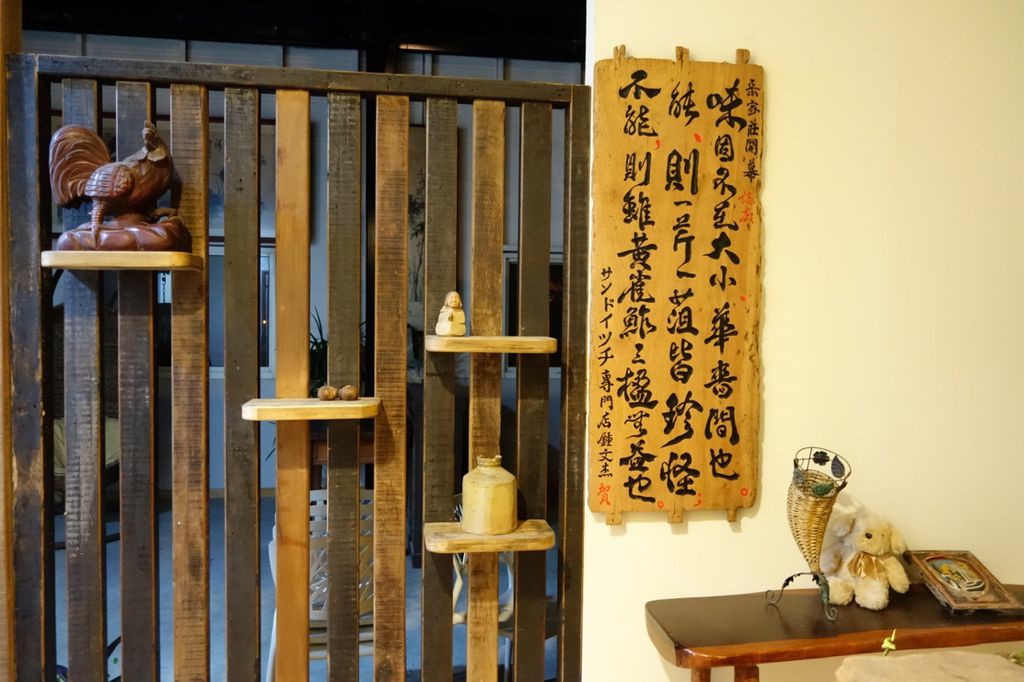 岳家莊開幕 誌慶
味固不在大小華嗇間也
能、則一芹一菹皆珍怪
不能、則雖黃雀鮓三楹無益也
サンドイツチ專門店鍾文杰 賀